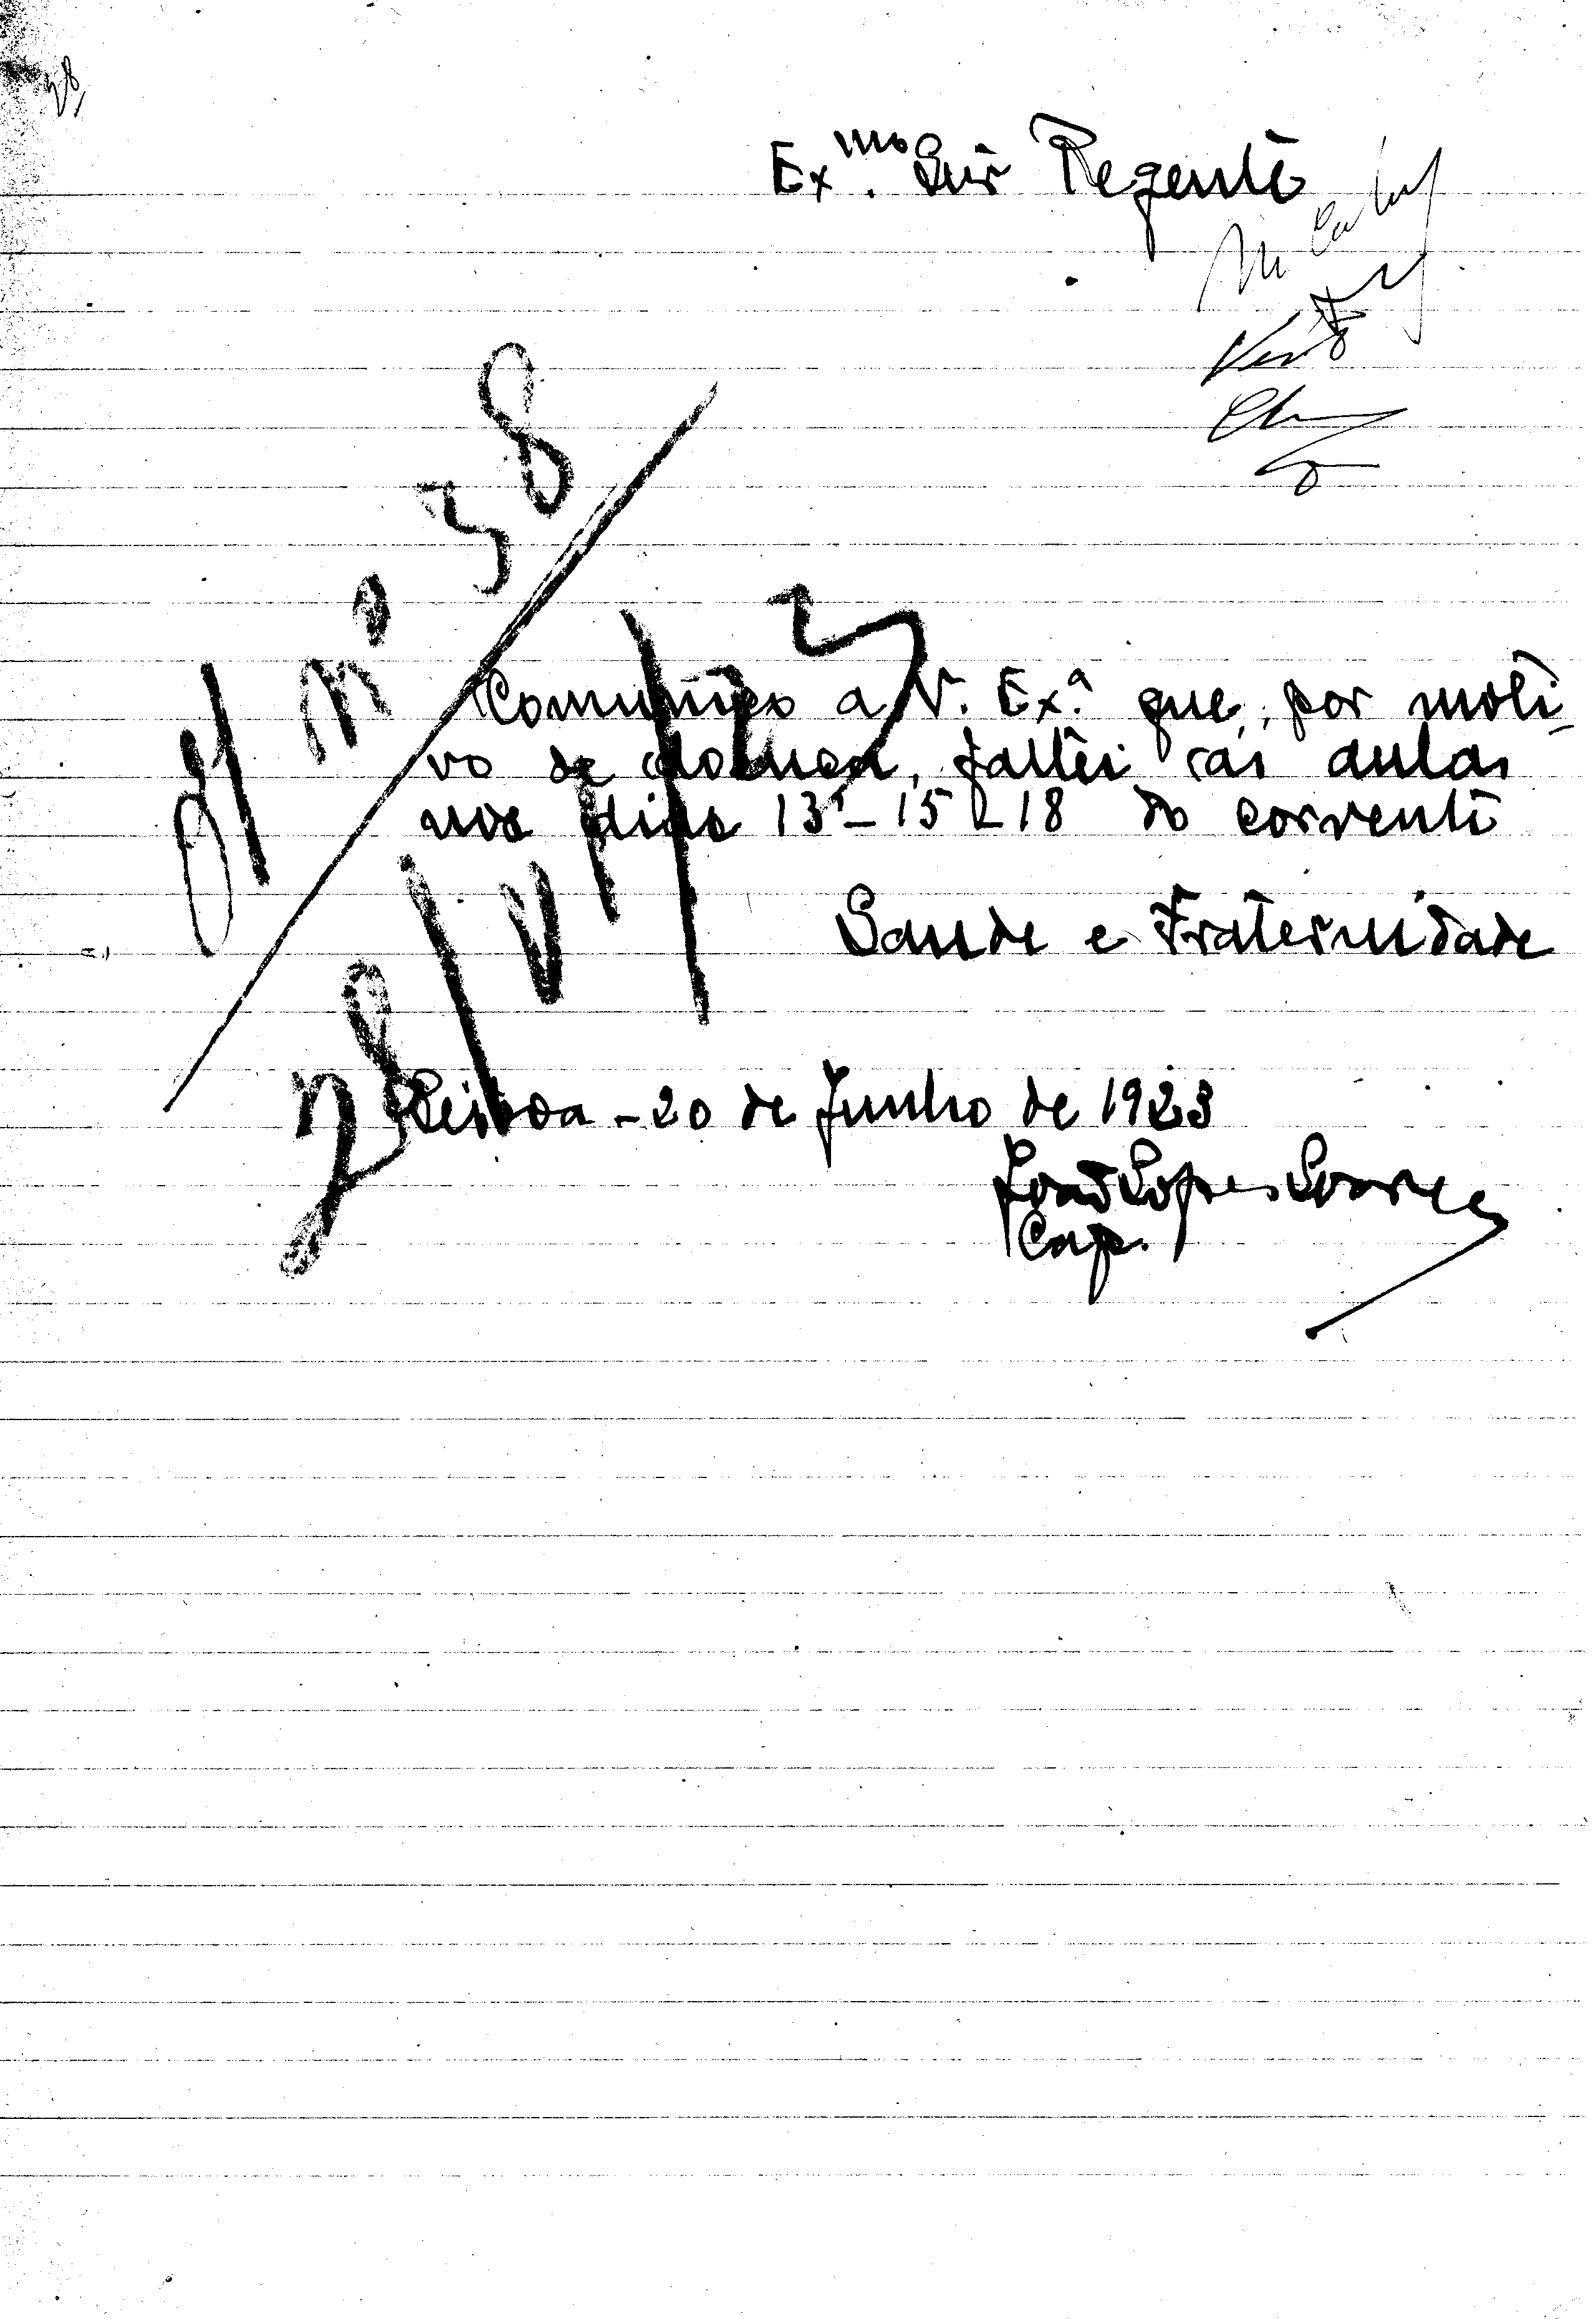 38
Ex.mo Snr Regente
Visto
nº 38
Comunico a V. Ex.ª que, por moti-
vo de doença, faltei ás aulas
nos dias 13-15-18 do corrente
Saude e Fraternidade
Lisboa - 20 de Junho de 1923
João Lopes Soares
Cap.